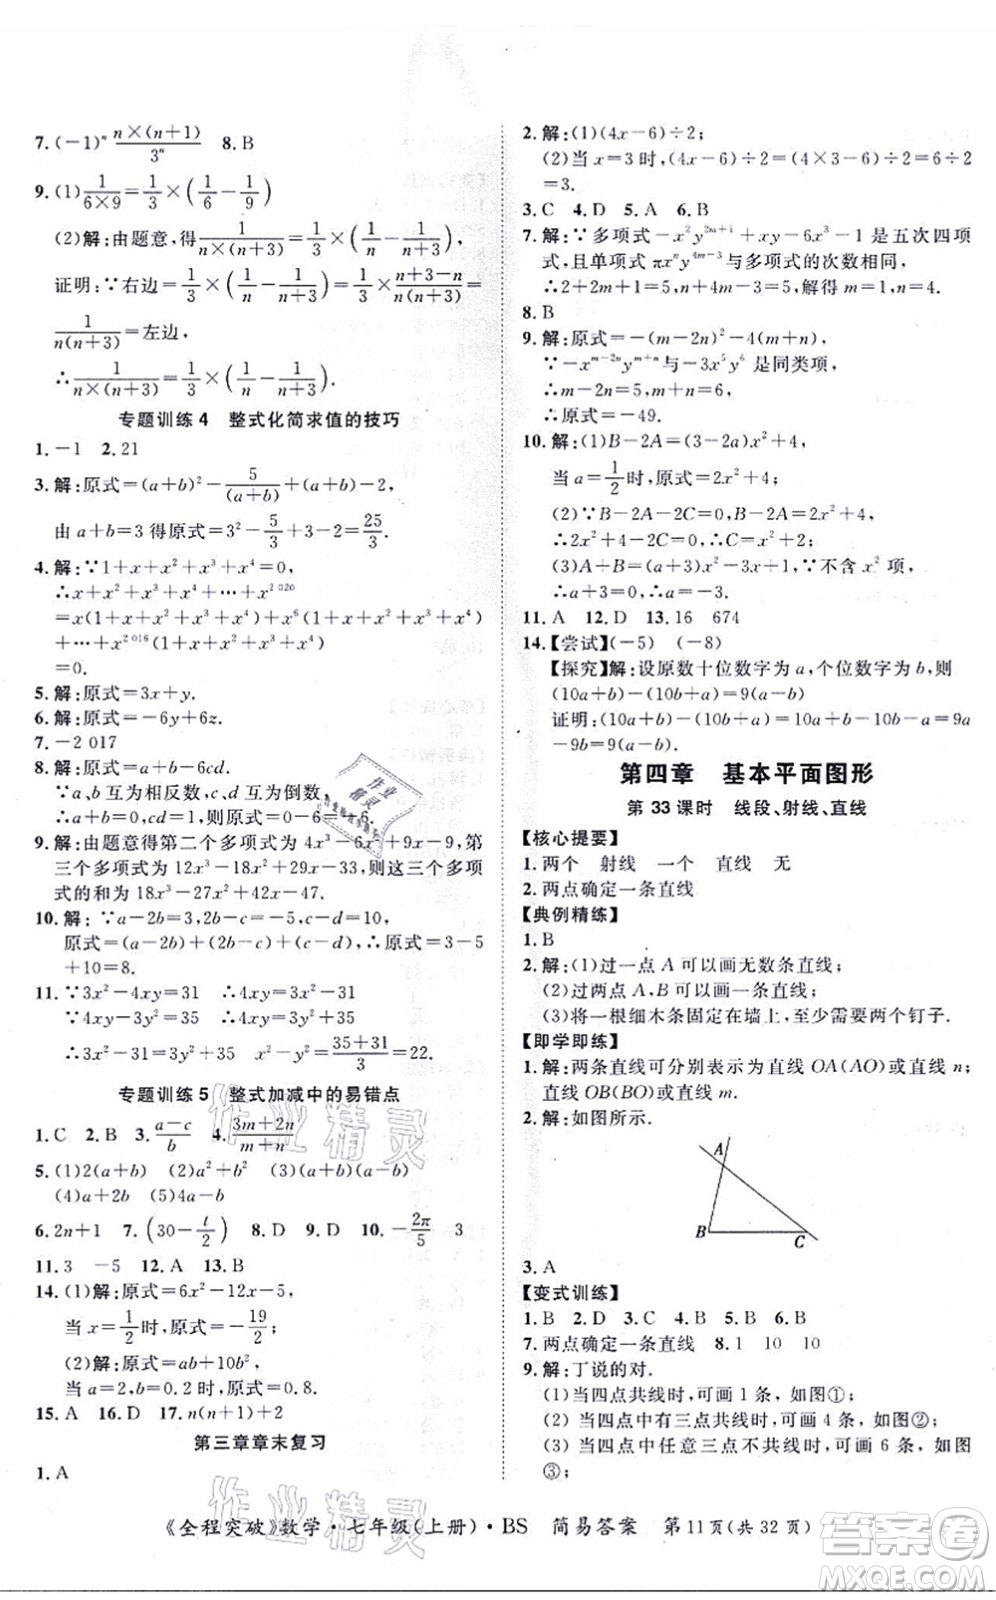 7.(-1)ⁿ n×(n+1)/3ⁿ 8.B
9.(1) 1/(6×9)=1/3×(1/6-1/9)
(2)解:由题意,得1/(n×(n+3))=1/3×(1/n-1/(n+3)),
证明:∵右边=1/3×(1/n-1/(n+3))=1/3×(n+3-n)/(n(n+3))=
1/(n(n+3))=左边,
∴1/(n×(n+3))=1/3×(1/n-1/(n+3)).
专题训练4 整式化简求值的技巧
1.-1 2.21
3.解:原式=(a+b)²-5/(a+b)+(a+b)-2,
由a+b=3得原式=3²-5/3+3-2=25/3.
4.解:∵1+x+x²+x³+x⁴=0,
∴x+x²+x³+x⁴+…+x²⁰²⁰
=x(1+x+x²+x³+x⁴)+x⁶(1+x+x²+x³+
x⁴)+…+x²⁰¹⁶(1+x+x²+x³+x⁴)
=0.
5.解:原式=3x+y.
6.解:原式=-6y+6z.
7.-2 017
8.解:原式=a+b-6cd.
∵a、b互为相反数,c、d互为倒数,
∴a+b=0,cd=1,则原式=0-6=-6.
9.解:根据题意得第二个多项式为4x³-6x²+9x-9,第
三个多项式为12x³-18x²+29x-33,则这三个多项
式的和为18x³-27x²+42x-47.
10.解:∵a-2b=3,2b-c=-5,c-d=10,
原式=a-2b+2b-c+c-d,∴原式=3-5
+10=8.
11.∵3x²-4xy=31 ∴4xy=3x²-31
∵4xy-2x²=35 ∴4xy=2x²+35
∴3x²-31=35-2x² x²-x²=(35+31)/3=22.
专题训练5 整式加减中的易错点
1.C 2.B 3.(a-c)/b 4.(3m+2n)/(m+n)
5.(1)2(a+b) (2)a²+b² (3)(a+b)(a-b)
(4)a+2b (5)4a-b
6.2n+1 7.(30-t/2) 8.D 9.D 10.-2π/5 3
11.3 -5 12.A 13.B
14.(1)解:原式=6x²-12x-5,
当x=1/2时,原式=-19/2;
(2)解:原式=ab+10b²,
当a=2,b=0.2时,原式=0.8.
15.A 16.D 17.n(n+1)+2
第三章章末复习
1.A
2.解:(1)(4x-6)÷2;
(2)当x=3时,(4x-6)÷2=(4×3-6)÷2=6÷2
=3.
3.C 4.D 5.A 6.B
7.解:∵多项式-x²y²ᵐ⁺¹+xy-6x³-1是五次四项
式,且单项式πxⁿy⁴ᵐ⁻³与多项式的次数相同,
∴2+2m+1=5,n+4m-3=5,解得m=1,n=4.
8.B
9.解:原式=-(m-2n)²-4(m+n),
∵-xᵐ⁻²ⁿyᵐ⁺ⁿ与-3x⁵y⁶是同类项,
∴m-2n=5,m+n=6,
∴原式=-49.
10.解:(1)B-2A=(3-2a)x²+4,
当a=1/2时,原式=2x²+4,
(2)∵B-2A-2C=0,B-2A=2x²+4,
∴2x²+4-2C=0,∴C=x²+2.
(3)A+B=(a+3)x²-3x+1,∵不含x²项,
∴a+3=0,∴a=-3.
11.A 12.D 13.16 674
14.【尝试】(-5) (-8)
【探究】解:设原数十位数字为a,个位数字为b,则
(10a+b)-(10b+a)=9(a-b)
证明:(10a+b)-(10b+a)=10a+b-10b-a=9a
-9b=9(a-b).
第四章 基本平面图形
第33课时 线段、射线、直线
【核心提要】
1.两个 射线 一个 直线 无
2.两点确定一条直线
【典例精练】
1.B
2.解:(1)过一点A可以画无数条直线;
(2)过两点A、B可以画一条直线;
(3)将一根细木条固定在墙上,至少需要两个钉子.
【即学即练】
1.解:两条直线可分别表示为直线OA(AO)或直线n;
直线OB(BO)或直线m.
2.解:如图所示.
A
B
C
3.A
【变式训练】
1.B 2.D 3.C 4.B 5.B 6.B
7.两点确定一条直线 8.1 10 10
9.解:丁说的对.
(1)当四点共线时,可画1条,如图①;
(2)当四点中有三点共线时,可画4条,如图②;
(3)当四点中任意三点不共线时,可画6条,如图
③;
《全程突破》数学·七年级(上册)·BS 简易答案 第11页(共32页)
作业精灵
作业精灵
作业精灵
答案圈
MXQE.COM